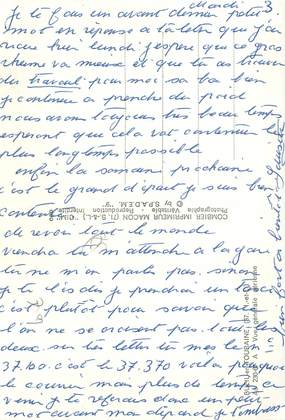 Mardi 3
je te fais un avant dernier petit
mot en réponse à ta lettre que j'ai
reçue hier lundi j'espère que ce gros
rhume va mieux et que tu as trouvé
du travail. pour moi sa va bien
je continue a prendre du poid
nous avons toujours très beau temps
esperont que cela vat continuer le
plus longtemps possible
enfin la semaine prochaine
c'est le grand départ je suis bien
contente
de revoir tout le monde
viendra tu m'attendre a la gare
tu ne m'en parle pas. sinon
je te l'ai dis je prendrai un taxi
c'est plutôt pour savoir que
l'on ne se croisent pas. tout les
deux. sur tes lettre tu mes le n°
37.60. c'est le 37.370 voila pourquoi
le courrier mai plus de temps a
venir je te referais donc un petit
mot avant mon départ. je t'embrasse
bien fort a bientôt
COMBIER IMPRIMEUR MACON (71) S-L-A-1. "CIM"
Photographie Véritable - Reproduction Interdite
© by S.P.A.D.E.M. "9".
Vue générale aérienne